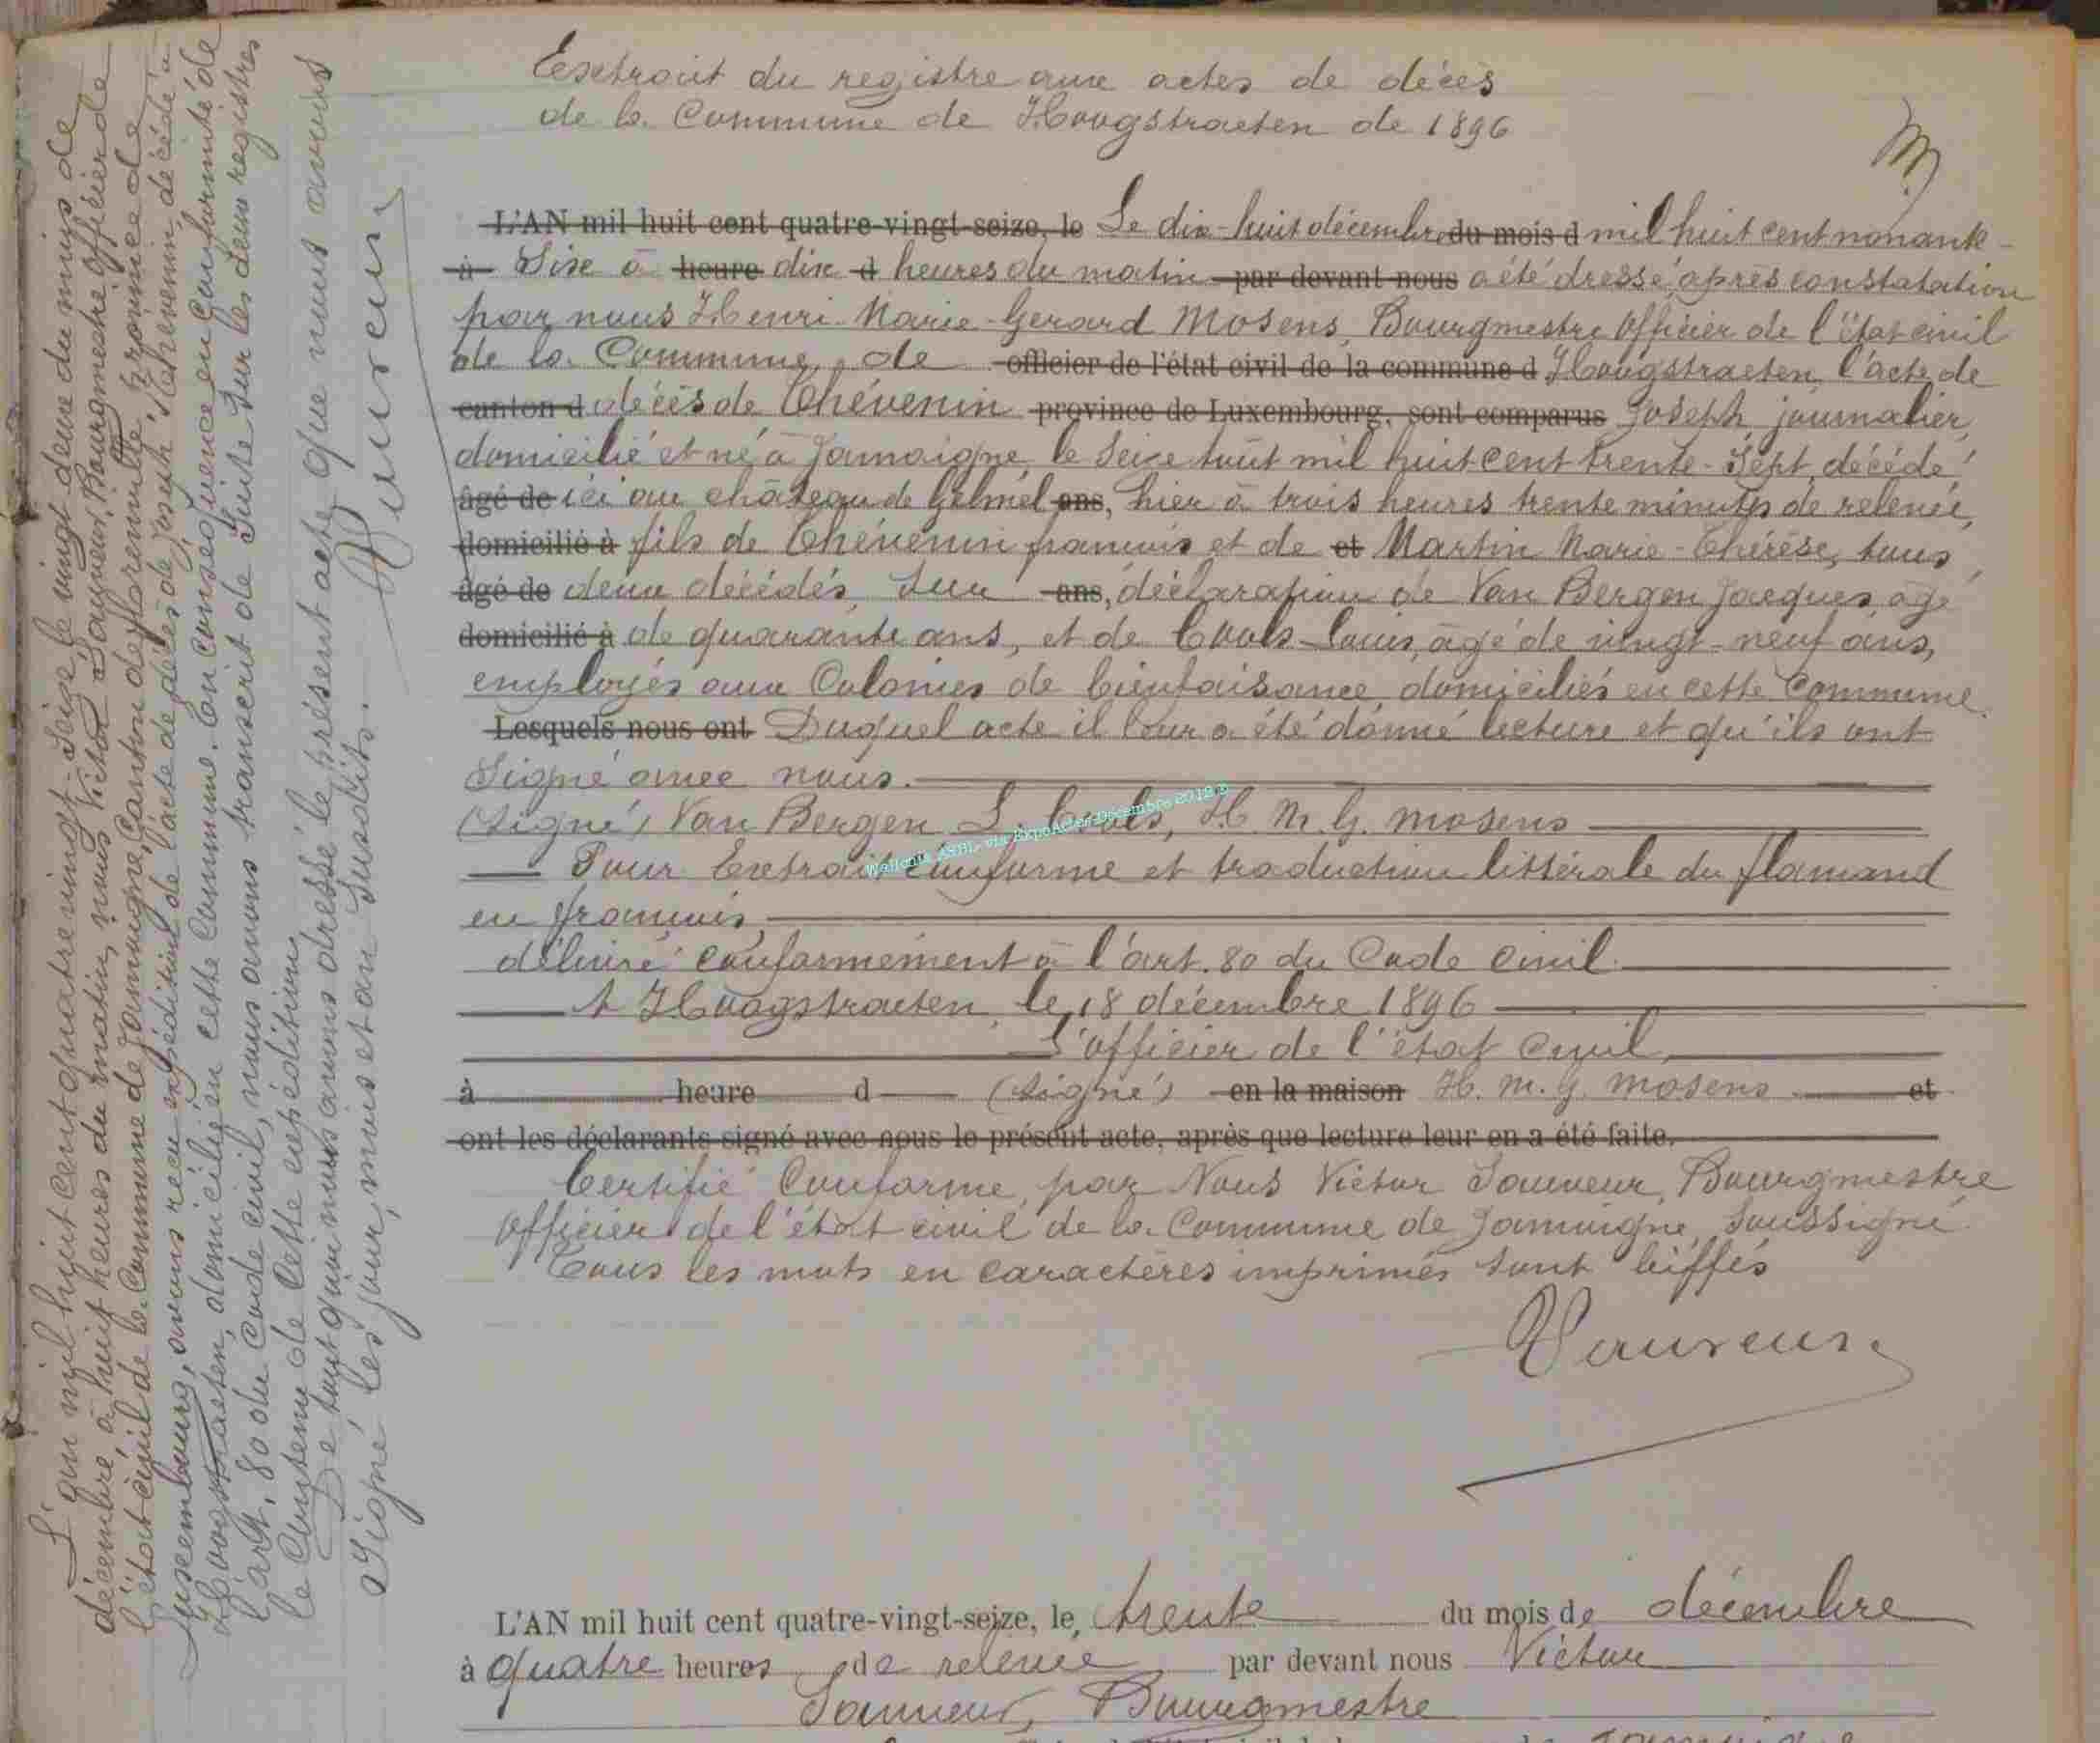 Extrait du registre aux actes de décès
de la Commune de Hoogstraeten de 1896
L'AN mil huit cent quatre-vingt-seize, le Le dix-huit décembre du mois d mil huit cent nonante-
à Six à heure dix d heures du matin par devant nous a été dressé après constatation
par nous Henri-Marie-Gerard Mosens, Bourgmestre Officier de l'état civil
de la Commune de officier de l'état civil de la commune d Hoogstraeten, l'acte de
canton d décès de Thévenin province de Luxembourg, sont comparus Joseph, journalier,
domicilié et né à Jamoigne, le seize août mil huit cent trente-sept, décédé
âgé de ici au château de Gelmel ans, hier à trois heures trente minutes de relevée,
domicilié à fils de Thévenin françois et de et Martin Marie-Thérèse, tous
âgé de deux décédés, Sur ans, déclaration de Van Bergen Jacques, âgé
domicilié à de quarante ans, et de Cools Louis, âgé de vingt-neuf ans,
employés aux Colonies de bienfaisance, domiciliés en cette Commune.
Lesquels nous ont Duquel acte il leur a été donné lecture et qu'ils ont
Signé avec nous.
(Signé) Van Bergen L. Cools, H. M. G. Mosens
Wallonia ASBL, via ExpoActes Décembre 2012
Pour Extrait conforme et traduction littérale du flamand
en français,
délivré conformément à l'art. 80 du Code Civil.
A Hoogstraeten, le 18 décembre 1896
L'officier de l'état Civil,
à heure d (Signé) en la maison H. M. G. Mosens et
ont les déclarants signé avec nous le présent acte, après que lecture leur en a été faite.
Certifié Conforme, par Nous Victor Sauveur, Bourgmestre
Officier de l'état civil de la Commune de Jamoigne, Soussigné.
Tous les mots en caractères imprimés sont biffés
VSauveur.
L'AN mil huit cent quatre-vingt-seize, le, trente du mois de décembre
à quatre heures de relevée par devant nous Victor
Sauveur, Bourgmestre
L'an mil huit cent quatre vingt-seize, le vingt-deux du mois de
décembre à huit heures du matin, nous Victor Sauveur, Bourgmestre officier de
l'état-civil de la Commune de Jamoigne, Canton de Florenville, province de
Luxembourg, avons reçu expédition de l'acte de décès de Joseph Thévenin, décédé à
Hoogstraeten, domicilié en cette Commune. En conséquence en conformité de
l'art. 80 du Code civil, nous avons transcrit de suite sur les deux registres
le Contenu de cette expédition.
De tout quoi nous avons dressé le présent acte que nous avons
Signé les jour, mois et an susdits.
VSauveur